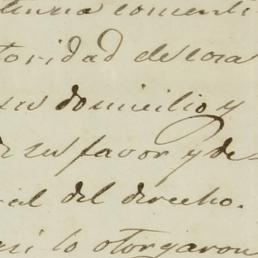 comenti
toridad desora
su domicilio y
de su favor y de-
al del derecho.
asi lo otorgaron